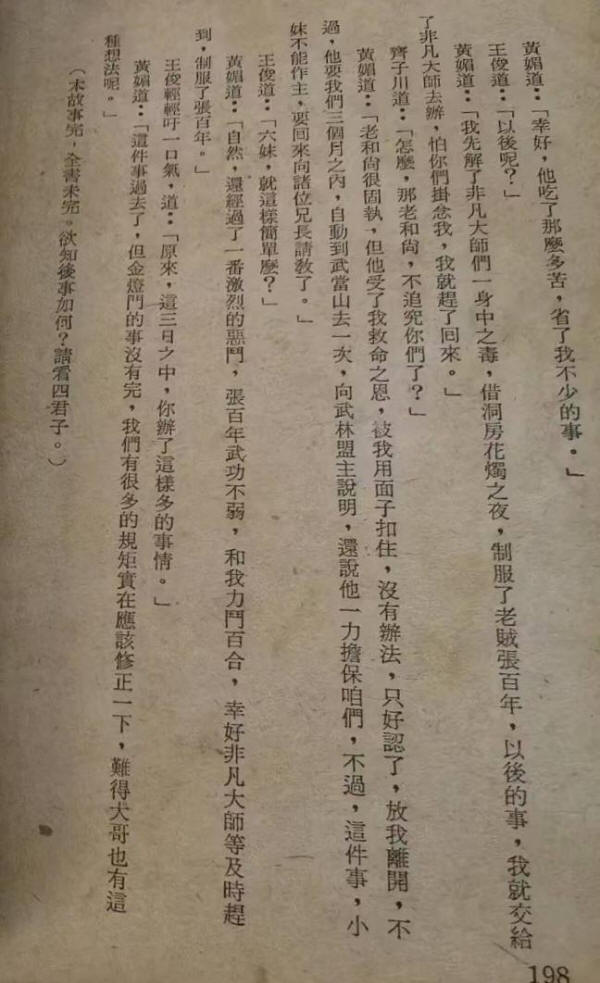 黃媚道：「幸好，他吃了那麼多苦，省了我不少的事。」
王俊道：「以後呢？」
黃媚道：「我先解了非凡大師們一身中之毒，借洞房花燭之夜，制服了老賊張百年，以後的事，我就交給
了非凡大師去辦，怕你們掛念我，我就趕了回來。」
齊子川道：「怎麼，那老和尚，不追究你們了？」
黃媚道：「老和尚很固執，但他受了我救命之恩，被我用面子扣住，沒有辦法，只好認了，放我離開，不
過，他要我們三個月之內，自動到武當山去一次，向武林盟主說明，還說他一力擔保咱們，不過，這件事，小
妹不能作主，要回來向諸位兄長請敎了。」
王俊道：「六妹，就這樣簡單麼？」
黃媚道：「自然，還經過了一番激烈的惡鬥，張百年武功不弱，和我力鬥百合，幸好非凡大師等及時趕
到，制服了張百年。」
王俊輕輕吁一口氣，道：「原來，這三日之中，你辦了這樣多的事情。」
黃媚道：「這件事過去了，但金燈門的事沒有完，我們有很多的規矩實在應該修正一下，難得大哥也有這
種想法呢。」
（本故事完，全書未完。欲知後事如何？請看四君子。）
198